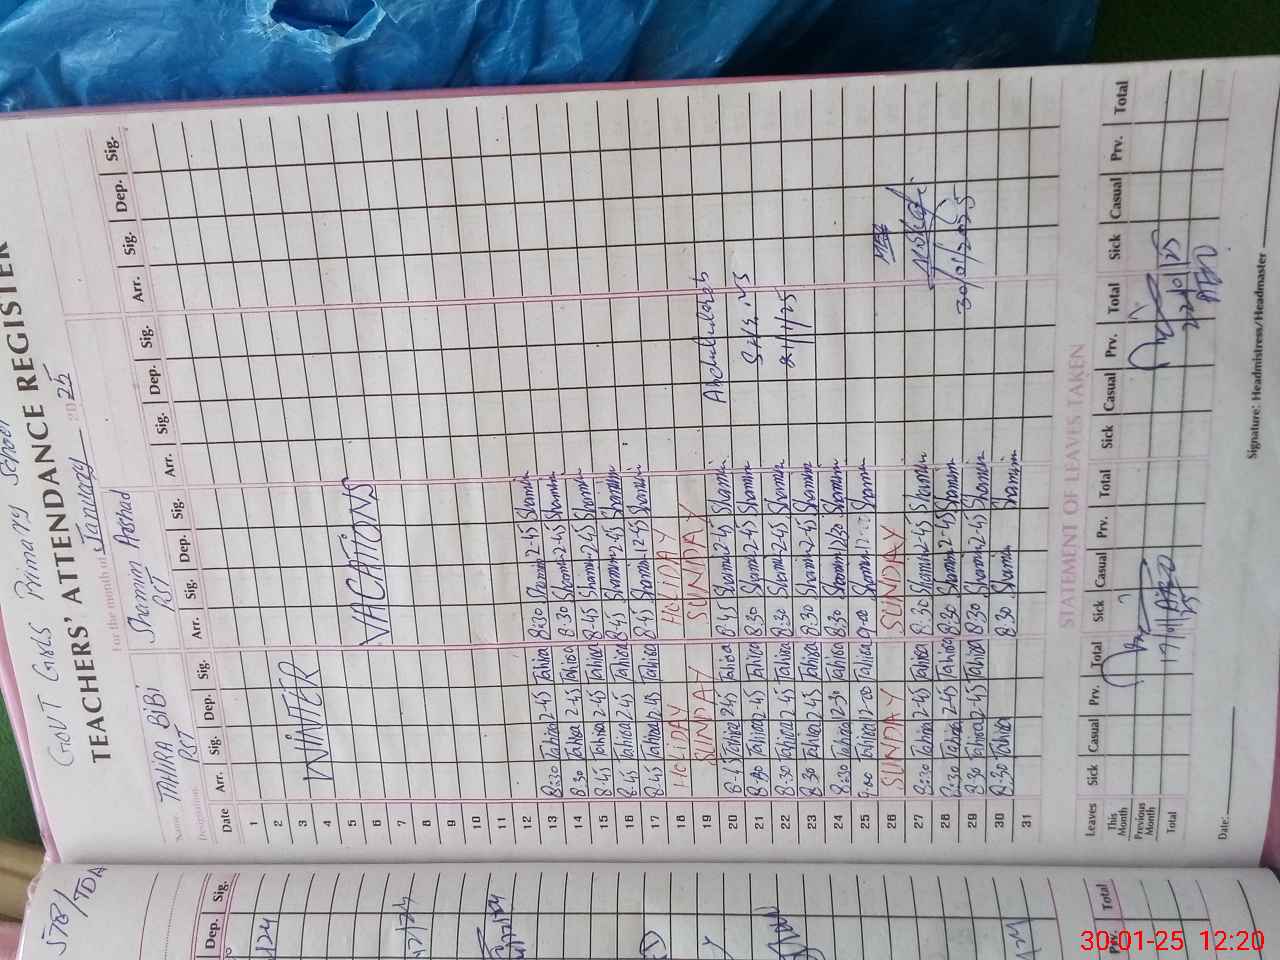 GOVT Girls Primary School
TEACHERS' ATTENDANCE REGISTER
For the month of January 2025
Name TAHIRA BIBI Shamim Arshad
Designation PST PST
Date Arr. Sig. Dep. Sig. Arr. Sig. Dep. Sig. Arr. Sig. Dep. Sig. Arr. Sig. Dep. Sig.
1
2
3
4 WINTER VACATIONS
5
6
7
8
9
10
11
12
13 8:30 Tahira 2-45 Tahira 8:30 Shamim 2-45 Shamim
14 8:30 Tahira 2-45 Tahira 8:30 Shamim 2-45 Shamim
15 8-45 Tahira 2-45 Tahira 8-45 Shamim 2-45 Shamim
16 8-45 Tahira 2-45 Tahira 8-45 Shamim 2-45 Shamim
17 8-45 Tahira 12-45 Tahira 8-45 Shamim 12-45 Shamim
18 HOLIDAY HOLIDAY
19 SUNDAY SUNDAY
20 8-45 Tahira 2-45 Tahira 8-45 Shamim 2-45 Shamim
21 8-30 Tahira 2-45 Tahira 8-30 Shamim 2-45 Shamim
22 8-30 Tahira 2-45 Tahira 8-30 Shamim 2-45 Shamim
21/1/25
23 8-30 Tahira 2-45 Tahira 8-30 Shamim 2-45 Shamim
24 8:30 Tahira 12-30 Tahira 8:30 Shamim 12:30 Shamim
25 9-00 Tahira 12-00 Tahira 9-00 Shamim 12-00 Shamim
26 SUNDAY SUNDAY
27 8:30 Tahira 2-45 Tahira 8:30 Shamim 2-45 Shamim
28 8:30 Tahira 2-45 Tahira 8:30 Shamim 2-45 Shamim
29 8:30 Tahira 2-45 Tahira 8:30 Shamim 2-45 Shamim
30/01/2025
30 8:30 Tahira 8:30 Shamim Shamim
31
STATEMENT OF LEAVES TAKEN
Leaves Sick Casual Prv. Total Sick Casual Prv. Total Sick Casual Prv. Total Sick Casual Prv. Total
This Month
Previous Month
Total
22/01/25
AEO
Date: Signature: Headmistress/Headmaster
Dep. Sig.
Prv. Total
30-01-25 12:20